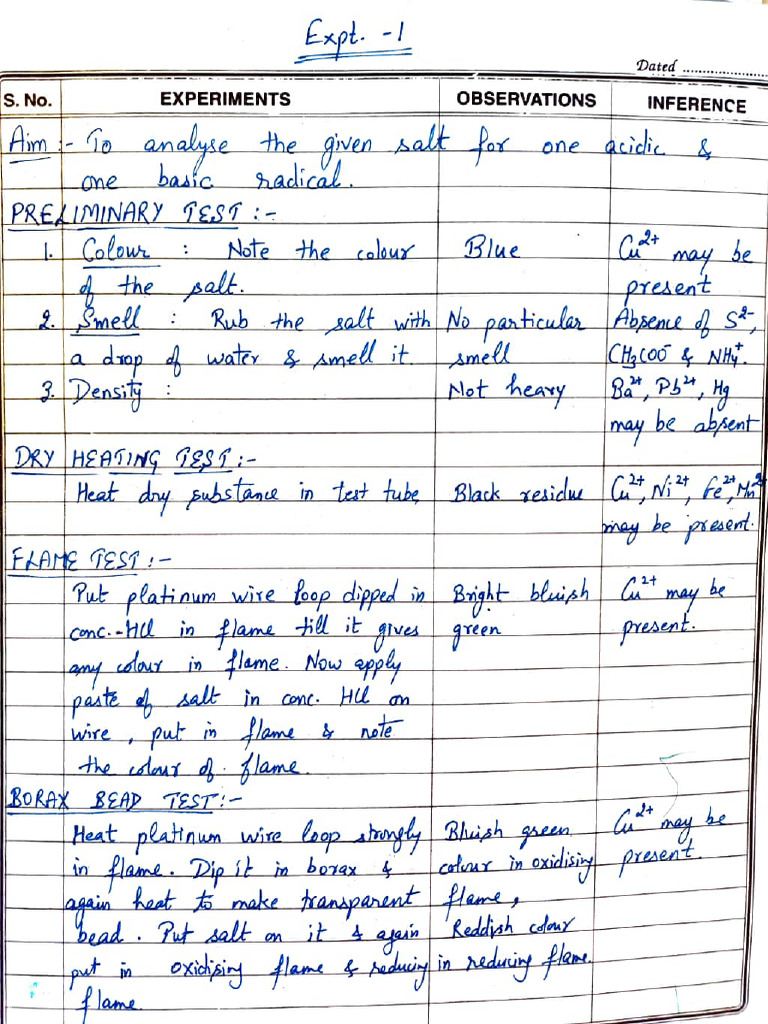 Expt. -1
Dated ........................
S. No. EXPERIMENTS OBSERVATIONS INFERENCE
Aim :- To analyse the given salt for one acidic &
one basic radical.
PRELIMINARY TEST :-
1. Colour : Note the colour Blue Cu²⁺ may be
of the salt. present
2. Smell : Rub the salt with No particular Absence of S²⁻,
a drop of water & smell it. smell CH₃COO⁻ & NH₄⁺.
3. Density : Not heavy Ba²⁺, Pb²⁺, Hg
may be absent
DRY HEATING TEST :-
Heat dry substance in test tube Black residue Cu²⁺, Ni²⁺, Fe²⁺, Mn²
may be present.
FLAME TEST :-
Put platinum wire loop dipped in Bright bluish Cu²⁺ may be
conc.-HCl in flame till it gives green present.
any colour in flame. Now apply
paste of salt in conc. HCl on
wire, put in flame & note
the colour of flame.
BORAX BEAD TEST :-
Heat platinum wire loop strongly Bluish green Cu²⁺ may be
in flame. Dip it in borax & colour in oxidising present.
again heat to make transparent flame,
bead. Put salt on it & again Reddish colour
put in oxidising flame & reducing in reducing flame.
flame.